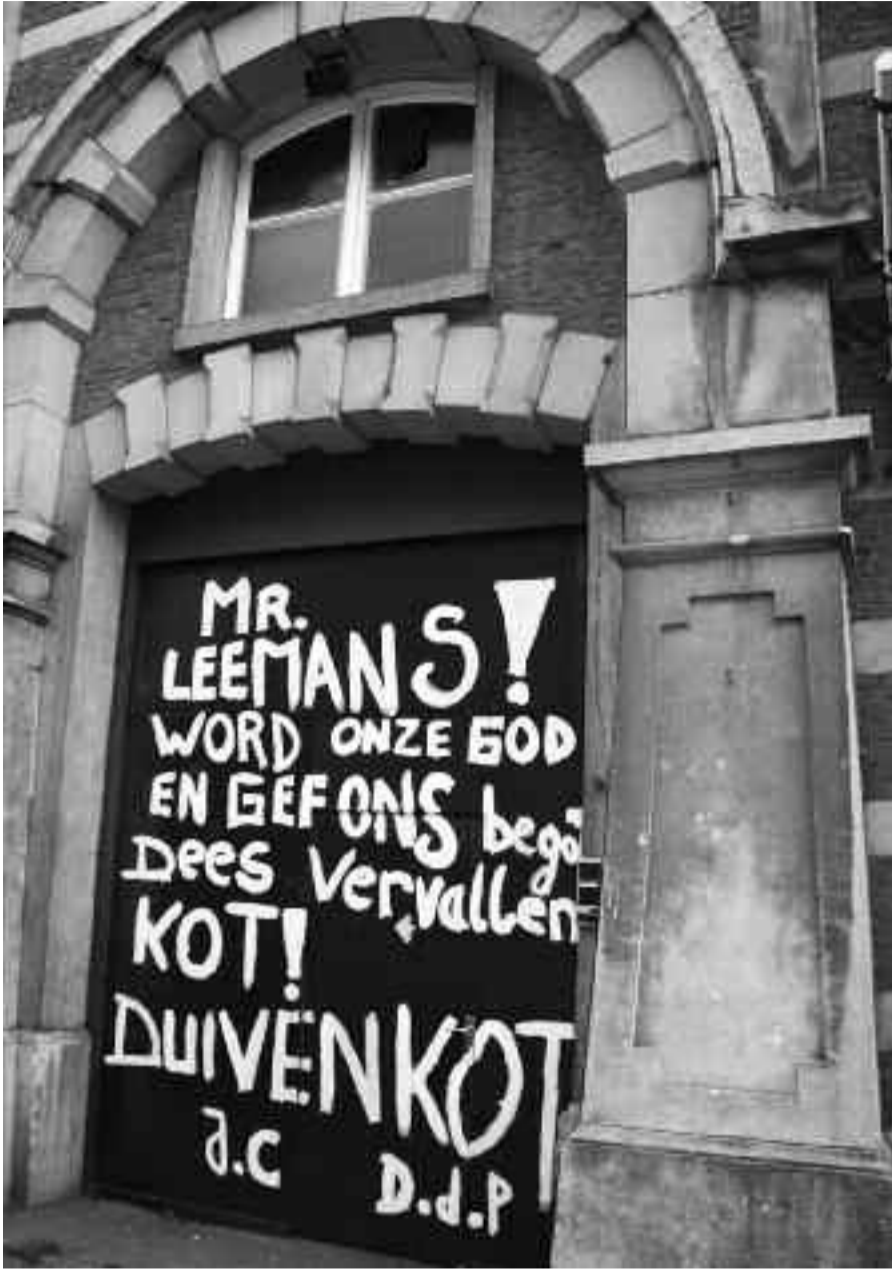 MR.
LEEMANS!
WORD ONZE GOD
EN GEF ONS begö
Dees Vervallen
KOT!
DUIVENKOT
J.C
D.d.P